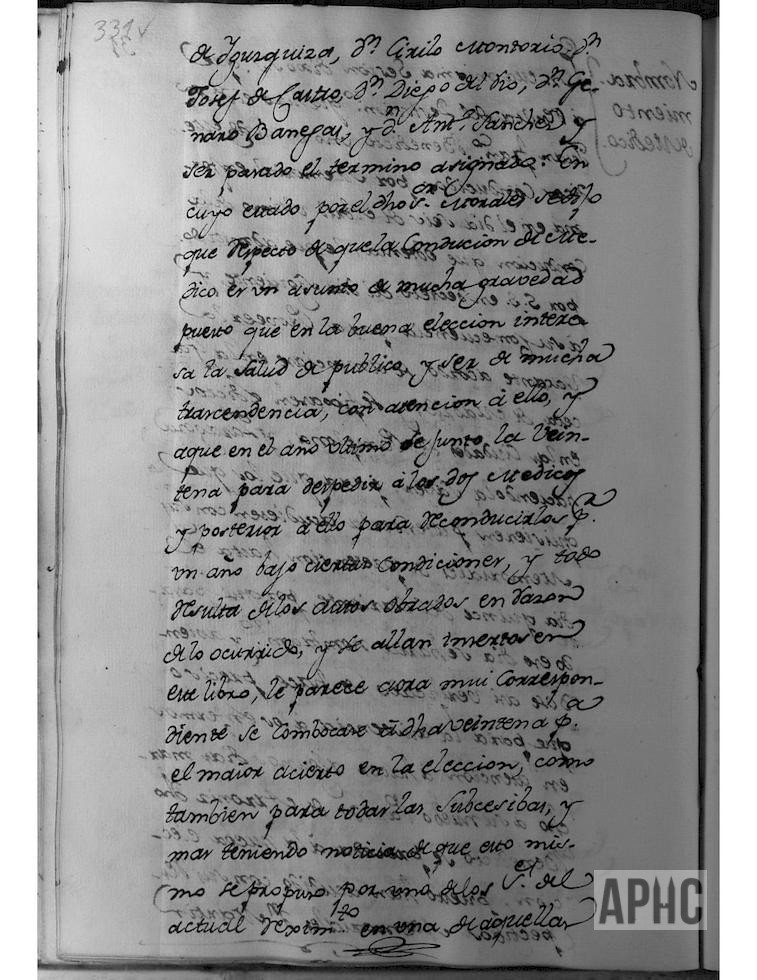 331v
de Yzurquiza, Dn. Cirilo Montorio, Dn.
Josef de Castro, Dn. Diego del Rio, Dn. Ge-
naro Banegas, y Dn. Antº. Sanchez y
ser pasado el termino asignado. En
cuyo estado por el dho Sor. Morales se dijo
que respecto de que la Conducion de Me-
dico es un asunto de mucha gravedad
puesto que en la buena eleccion intere-
sa la salud de publico, y ser de mucha
trascendencia, con atencion á ello, y
aque en el año ultimo se junto la Vein-
tena para despedir á los dos Medicos
y posterior a ello para reconducirlos pa.
un año bajo ciertas condiciones, y todo
resulta de los autos obrados en razon
de lo ocurrido, y se allan insertos en
este libro, le parece cosa mui Correspon-
diente se combocase á dha veintena pa.
el maior acierto en la eleccion, como
tambien para todas las Subcesibas, y
mas teniendo noticia de que esto mis-
mo se propuso por uno de los Ses. del
actual Reximto en una de aquellas
Nombra
miento
de Medico
APHC